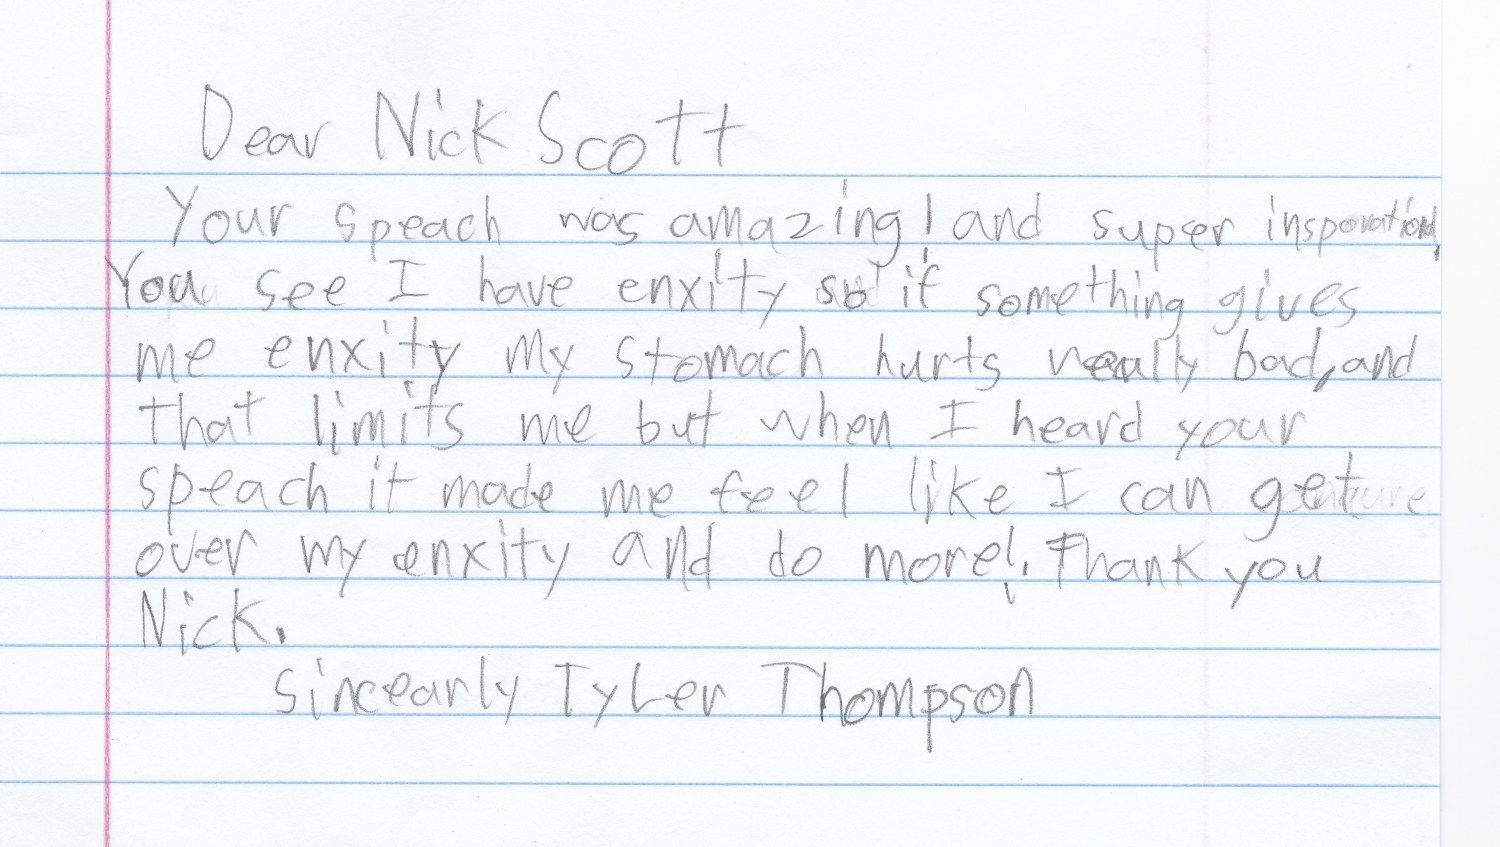 Dear Nick Scott
Your speach was amazing! and super insporational,
You see I have enxity so if something gives
me enxity my stomach hurts really bad, and
that limits me but when I heard your
speach it made me feel like I can get
over my enxity and do more!. Thank you
Nick.
Sincearly Tyler Thompson